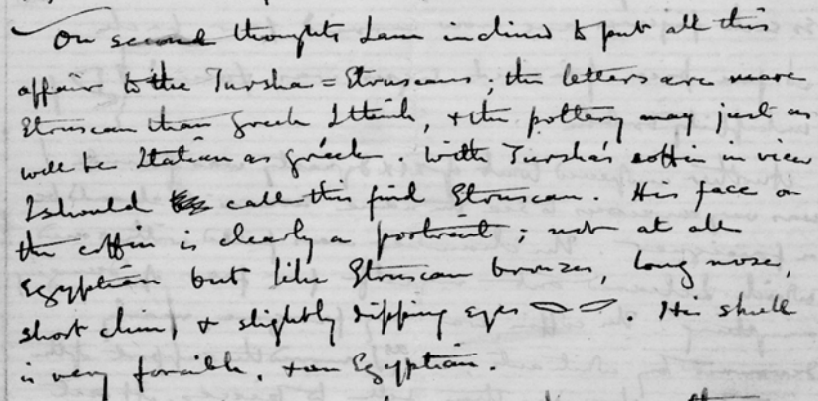 On second thoughts I am inclined to put all this
affair to the Tursha = Etruscans; the letters are more
Etruscan than Greek I think, & the pottery may just as
well be Italian as Greek. With Tursha's coffin in view
I should call this find Etruscan. His face on
the coffin is clearly a portrait; not at all
Egyptian but like Etruscan bronzes, long nose,
short chin, & slightly dipping eyes. His skull
is very forcible, & un Egyptian.